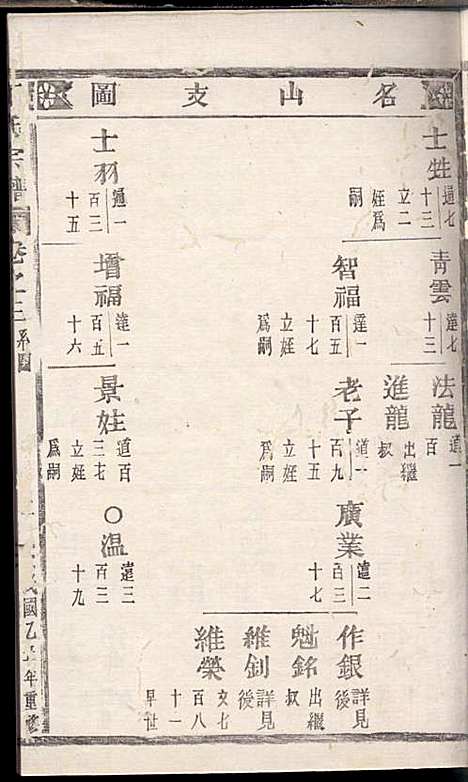 名山支圖
士甡 通七十三 立二姪爲嗣
士羽 通一百三十五
青雲 達七十三
智福 達一百五十七 立姪爲嗣
增福 達一百五十六
法龍 道一百
進龍 出繼叔
老子 道一百九十五 立姪爲嗣
景姓 道百三七 立姪爲嗣
廣業 遠二百三十七
○温 遠三百三十九
作銀 詳見後
魁銘 出繼叔
維釗 詳見後
維榮 文七百八十一 早世
宗譜
卷之三 系圖
國乙 年重修